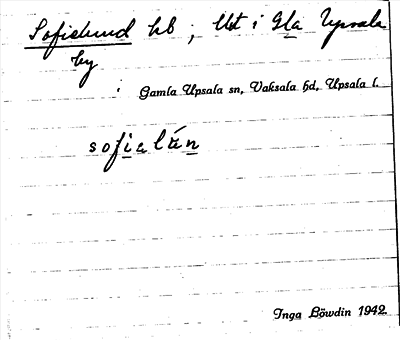 Sofielund hb ; Ut i Gla Upsala
by
Gamla Upsala sn, Vaksala hd, Upsala l.
sofialún
Inga Löwdin 1942.